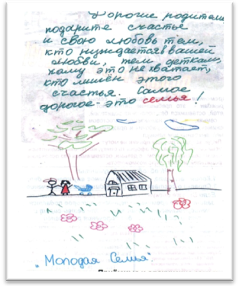 Дорогие родители
подарите счастье
и свою любовь тем,
кто нуждается в вашей
любви, тем деткам,
кому это не хватает,
кто лишён этого
счастья. Самое
дорогое - это семья!
"Молодая Семья"